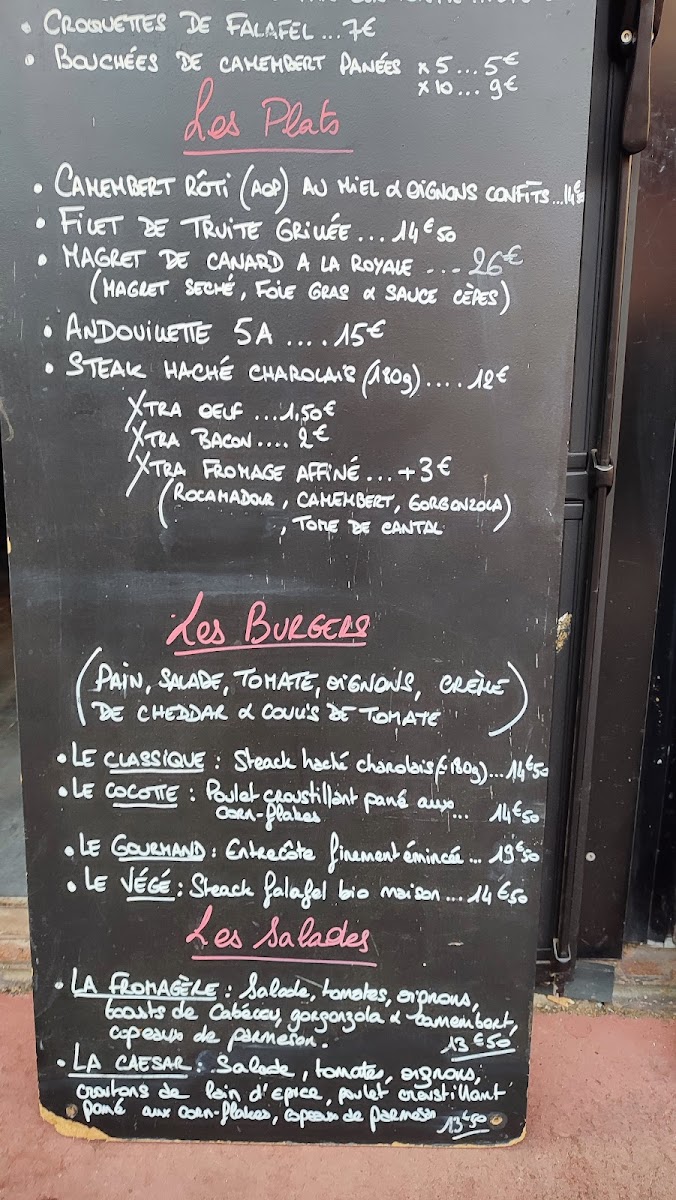 • CROQUETTES DE FALAFEL ... 7€
• BOUCHÉES DE CAMEMBERT PANÉES x5 ... 5€
x10 ... 9€
Les Plats
• CAMEMBERT RÔTI (AOP) AU MIEL & OIGNONS CONFITS ... 14€50
• FILET DE TRUITE GRILLÉE ... 14€50
• MAGRET DE CANARD A LA ROYALE ... 26€
(MAGRET SECHÉ, FOIE GRAS & SAUCE CÈPES)
• ANDOUILLETTE 5A .... 15€
• STEAK HACHÉ CHAROLAIS (180g) .... 12€
XTRA OEUF ... 1,50€
XTRA BACON .... 2€
XTRA FROMAGE AFFINÉ ... +3€
(ROCAMADOUR, CAMEMBERT, GORGONZOLA)
, TOME DE CANTAL
Les BURGERS
(PAIN, SALADE, TOMATE, OIGNONS, CRÈME
DE CHEDDAR & COULIS DE TOMATE)
• LE CLASSIQUE : Steack haché charolais (±180g) ... 14€50
• LE COCOTTE : Poulet croustillant pané aux
corn-flakes ... 14€50
• LE GOURMAND : Entrecôte finement émincée ... 19€50
• LE VÉGÉ : Steack falafel bio maison ... 14€50
Les Salades
• LA FROMAGÈRE : Salade, tomates, oignons,
toasts de Cabécou, gorgonzola & camembert,
copeaux de parmesan. 13€50
• LA CAESAR : Salade, tomates, oignons,
croutons de Pain d'épice, poulet croustillant
pané aux corn-flakes, copeaux de parmesan 13€50